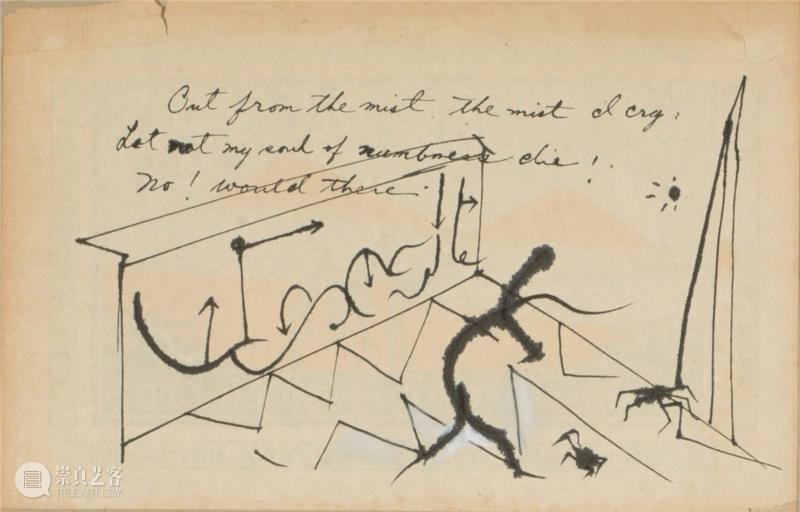 Out from the mist the mist I cry:
Let not my soul of numbness die!
No! would there
崇真艺客
TRUEART.COM